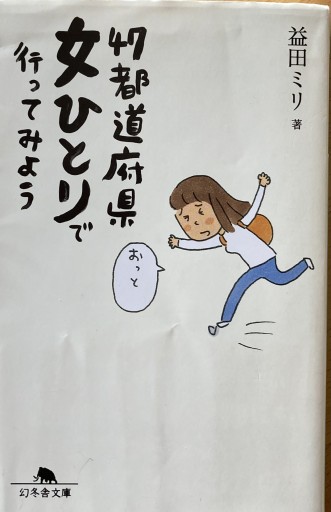 益田ミリ 著
47都道府県
女ひとりで
行ってみよう
おっと
幻冬舎文庫